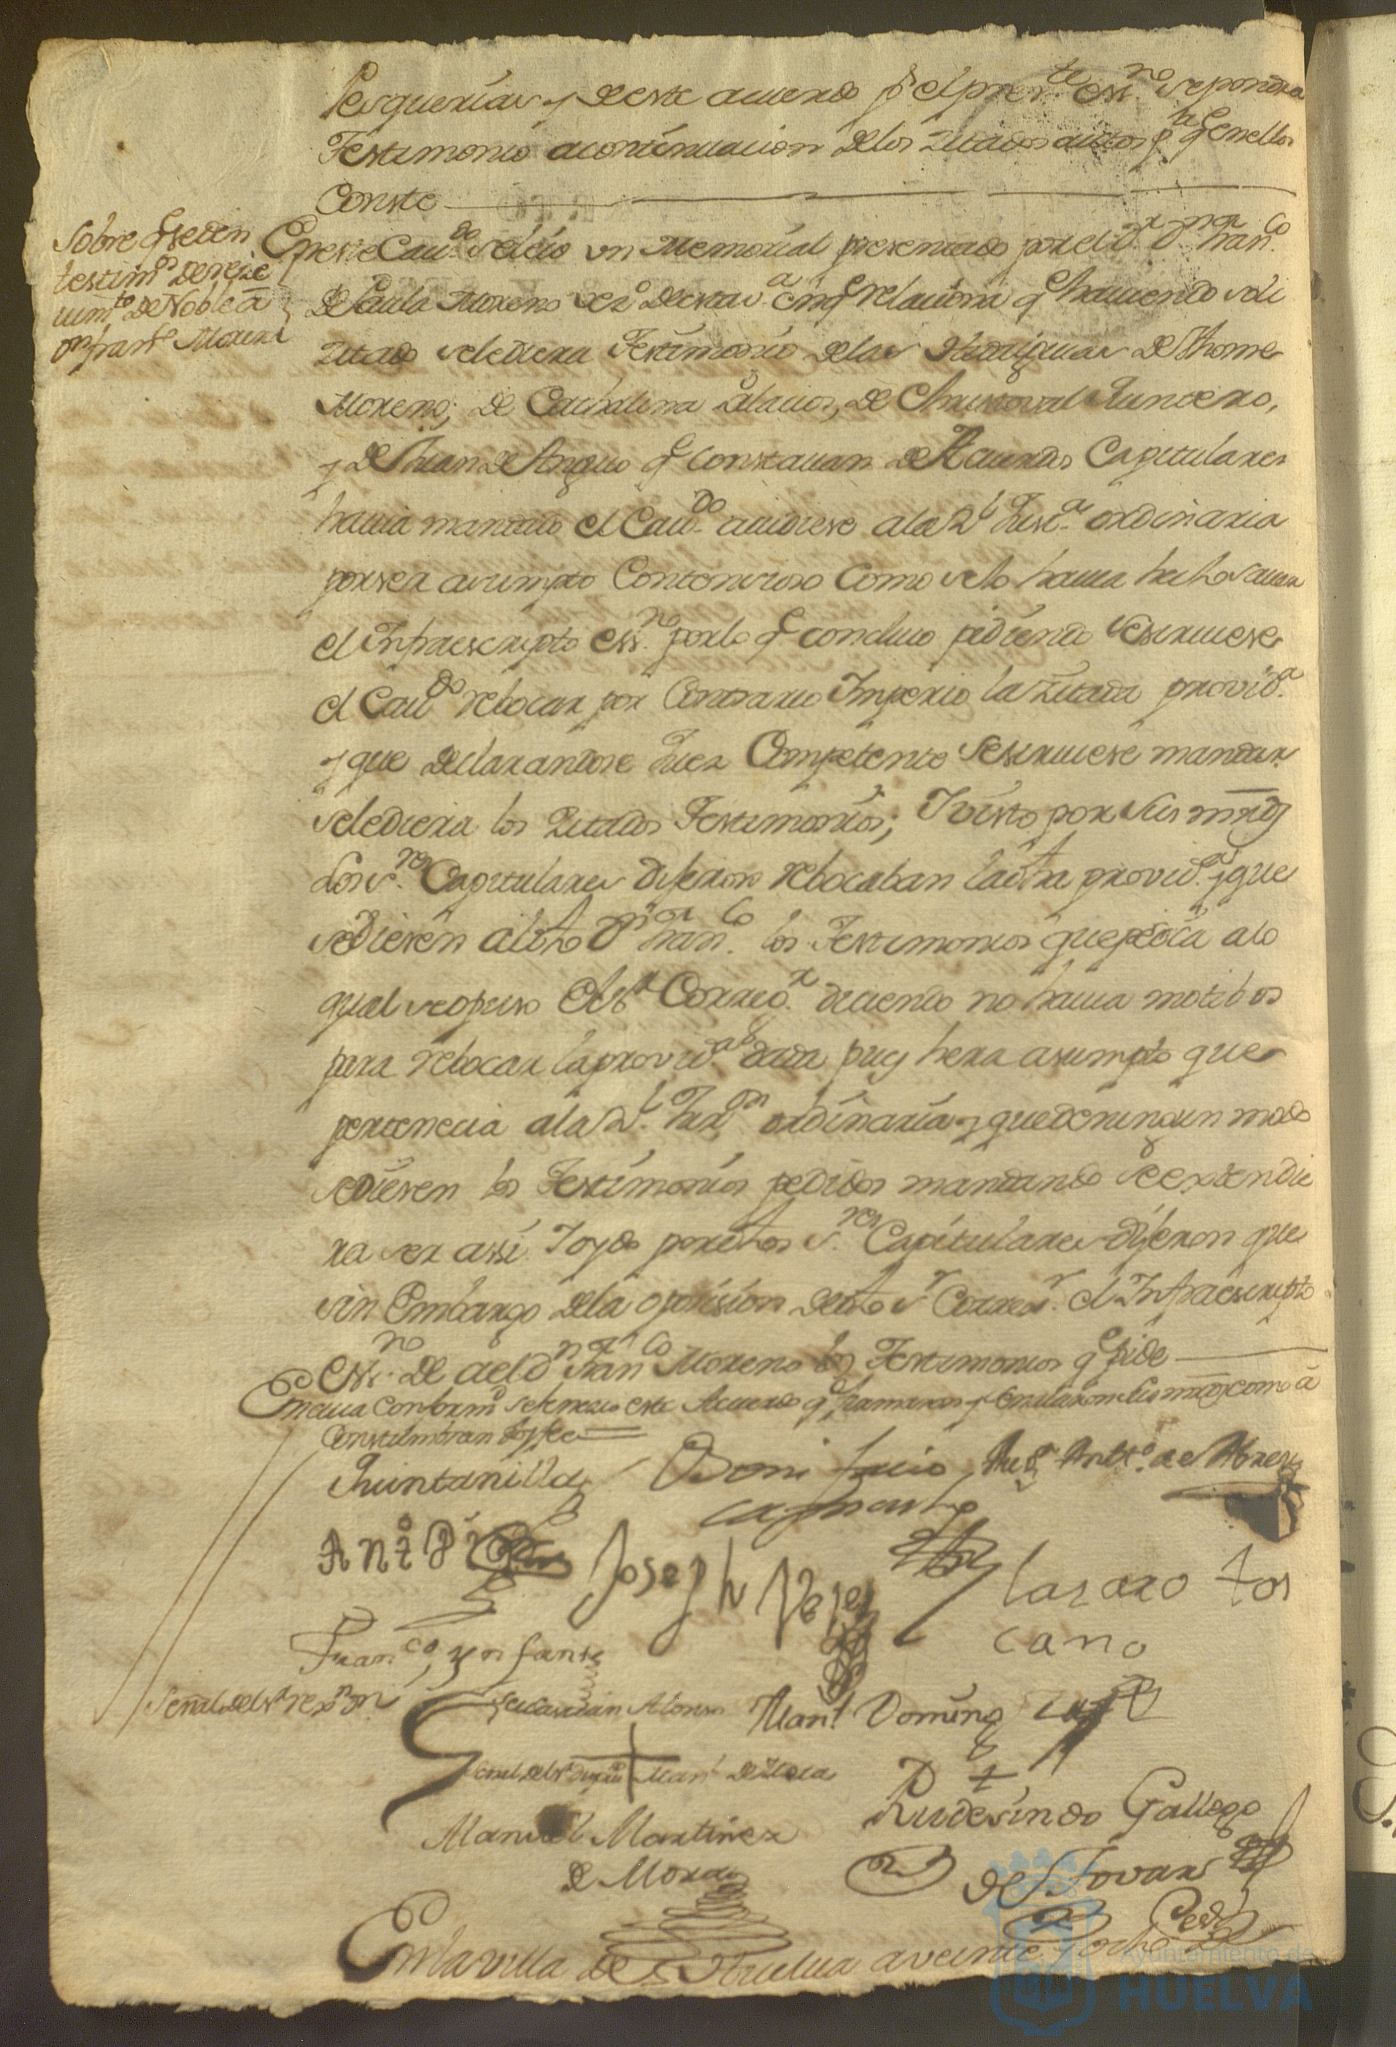 Pesquerías y de este acuerdo pr el preste essno se pondra
Testimonio a continuacion de los zitados autos pa qe en ellos
Conste
Sobre qe se den
testimos de reziuimto de Noblea
Dn Franco Moreno
En este Caudo se leió un Memorial presentado por el Dr Dn Franco
de Paula Moreno vezo de esta va en qe relaciona qe hauiendo soli
zitado se le diera Testimonio de las Hidalguias de Thome
Moreno, de Catalina Palacios, de Christoval Quintero,
y de Juan de Angulo qe constauan de Acuerdos Capitulares
hauia mandado el Caudo acudiese a la Rl Justa ordinaria
por ser asumpto Contencioso como se lo hauia hecho sauer
el Infraescripto essno por lo qe concluio pidiendo se siruiese
el Caudo rebocar por Contrario Imperio la zitada provida
y que declarandose Juez Competente se siruiese mandar
se le diera los zitados Testimonios; Y visto por sus mrds
Los sres Capitulares dijeron rebocaban la dha provida y que
se diesen al dho Dn Franco los Testimonios que pedia a lo
qual se opuso el Sr Corregr diciendo no hauia motibos
para rebocar la provida dada pues hera asumpto que
pertenecia a la Rl Jurdon ordinaria y que de ningun modo
se diesen los Testimonios pedidos mandando se extendie
ra ser assi. Y oydo por dhos sres Capitulares dijeron que
sin Embargo de la oposision de dho sr Corregr el Infraescripto
Essno de a el Dn Franco Moreno los Testimonios qe pide
En cuia Conformd se fenezio este Acuerdo qe firmaron y señalaron sus mrds como a
Constumbran doy fee
Quintanilla Bonifacio Anto de Abreu
Camacho
Anto Pz Joseph Velez Lazaro Tos
cano
Franco Ynfante
Señal del sr rexor
Sebastian Alonso Manl Doming
Señal del sr Manl de Mora
Manuel Martinez Rudesindo Gallego
de Mora de Tovar
En la villa de Huelua a veinte y ocho de
Ayuntamiento de
HUELVA